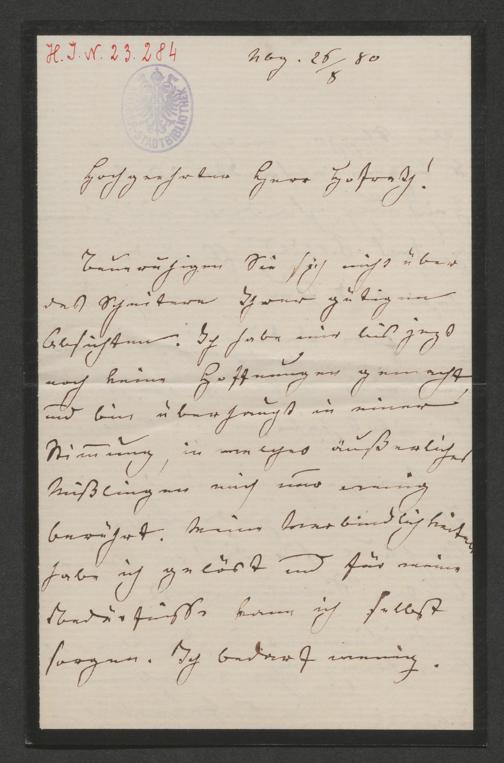 H. I. N. 23.284
Nbg. 26/8 80
STADTBIBLIOTHEK
Hochgeehrter Herr Hofrath!
Beunruhigen Sie sich nicht über
das Scheitern Ihrer gütigen
Absichten. Ich habe mir bis jetzt
noch keine Hoffnungen gemacht,
und bin überhaupt in einer
Stimmung, in welcher äußerliches
Mißlingen mich nur wenig
berührt. Meine Verbindlichkeiten
habe ich gelöst und für meine
Bedürfnisse kann ich selbst
sorgen. Ich bedarf wenig.